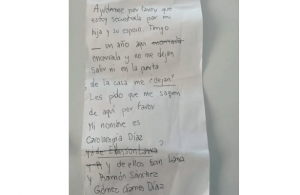 Ayúdenme por favor que
estoy secuestrada por mi
hija y su esposo. Tengo
un año aqui
encerrada y no me dejan
salir ni en la puerta
de la casa me dejan.
Les pido que me saquen
de aqui por favor
Mi nombre es
Díaz
y de ellos son Lana
y Ramón Sánchez
Gómez Díaz